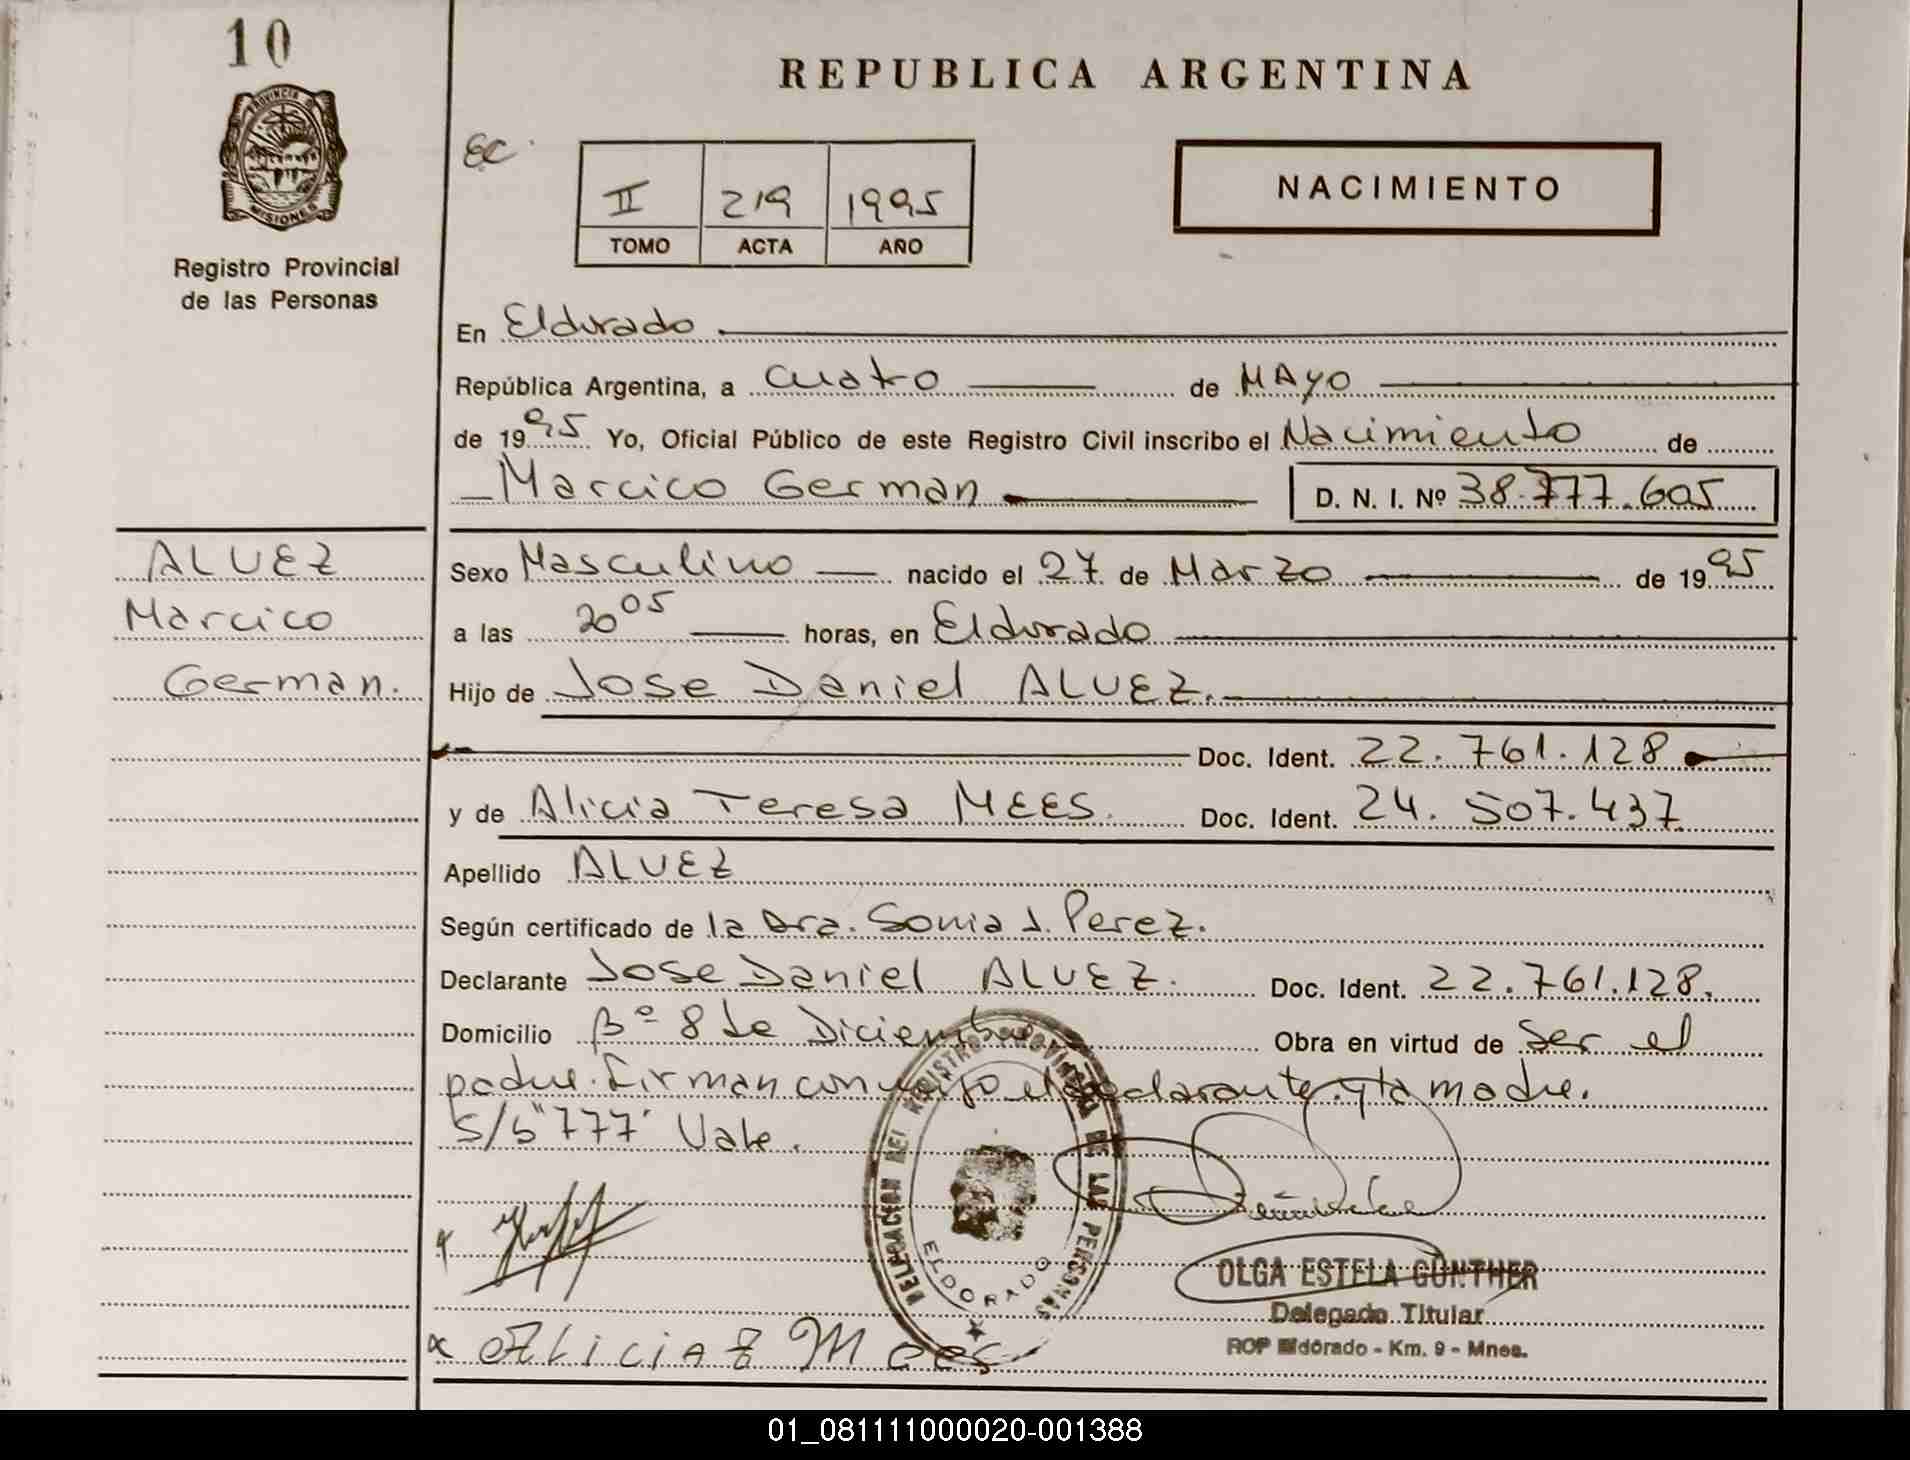 10
PROVINCIA D
MISIONES
Registro Provincial
de las Personas
REPUBLICA ARGENTINA
II 219 1995
TOMO ACTA AÑO
NACIMIENTO
En Eldorado
República Argentina, a cuatro de MAYO
de 1995 Yo, Oficial Público de este Registro Civil inscribo el Nacimiento de
Marcico German D. N. I. Nº 38.777.605
ALVEZ
Marcico
German.
Sexo Masculino nacido el 27 de Marzo de 1995
a las 20 05 horas, en Eldorado
Hijo de Jose Daniel ALVEZ.
Doc. Ident. 22.761.128
y de Alicia Teresa MEES. Doc. Ident. 24.507.437
Apellido ALVEZ
Según certificado de la Dra. Sonia J. Perez.
Declarante Jose Daniel ALVEZ. Doc. Ident. 22.761.128.
Domicilio Bº 8 de Diciembre Obra en virtud de Ser el
padre. Firman conmigo el declarante y la madre.
S/b "777" Vale.
DELEGACION DEL REGISTRO PROVINCIAL DE LAS PERSONAS
ELDORADO
OLGA ESTELA GÜNTHER
Delegado Titular
RCP Eldorado - Km. 9 - Mnes.
x Alicia T Mees
01_081111000020-001388